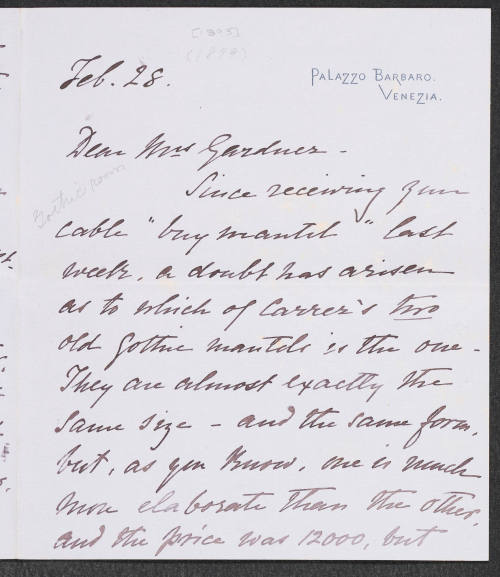 [1895]
(1898)
Feb. 28.
PALAZZO BARBARO.
VENEZIA.
Dear Mrs Gardner –
Gothic room
Since receiving your
cable "buy mantel" last
week, a doubt has arisen
as to which of Carrer's two
old Gothic mantels is the one –
They are almost exactly the
same size – and the same form,
but, as you know, one is much
more elaborate than the other,
and the price was 12000, but